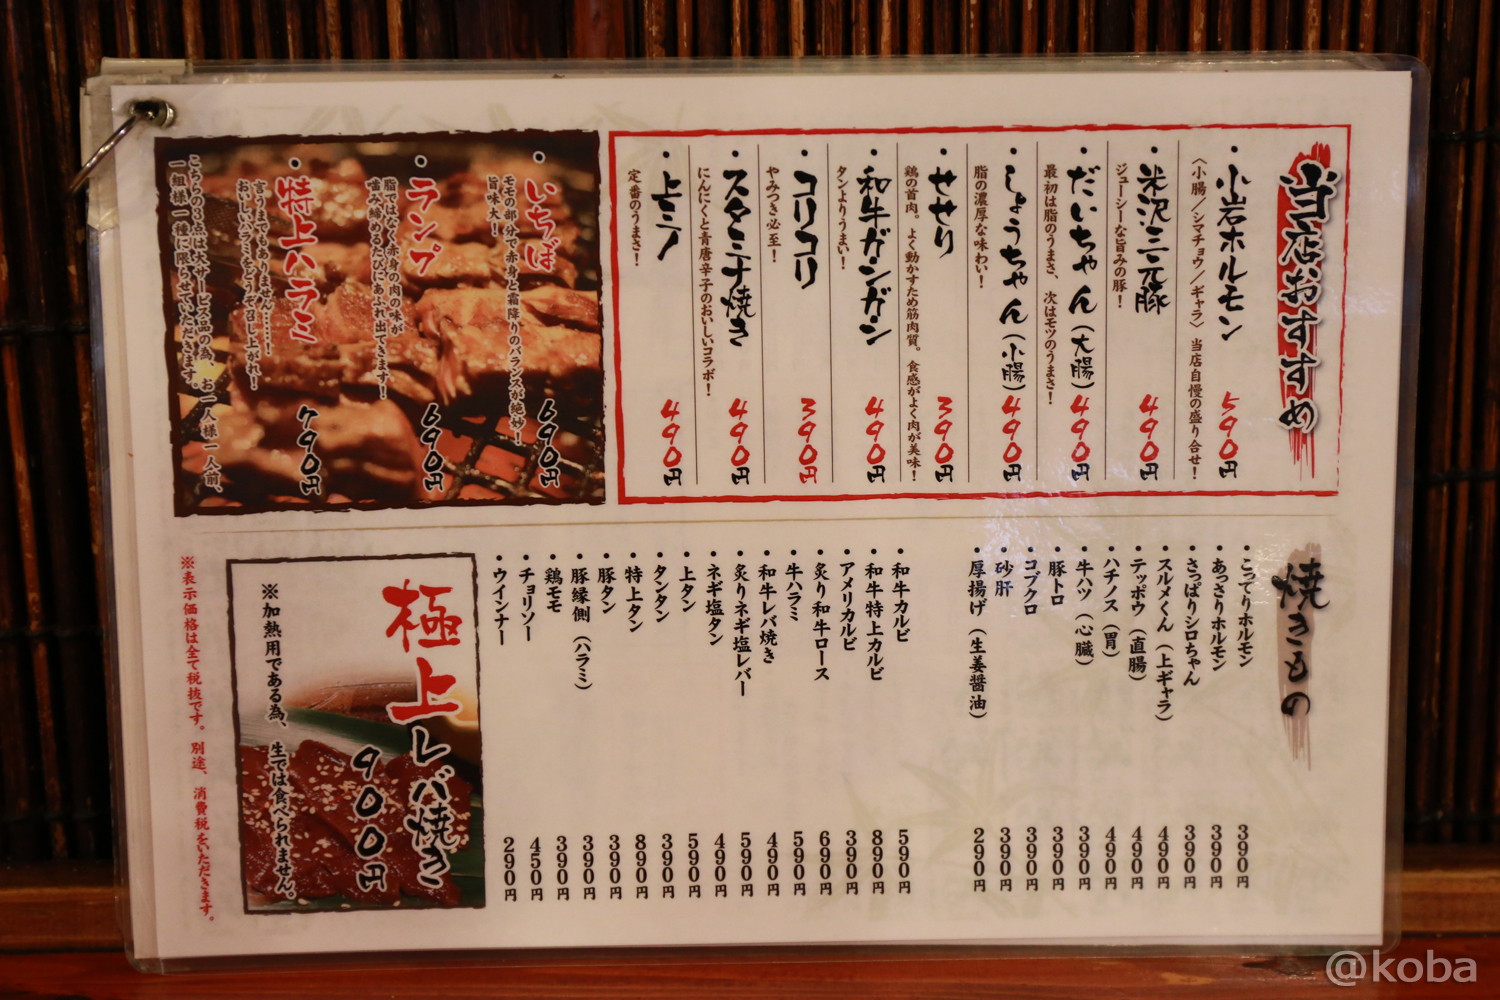 当店おすすめ
・小岩ホルモン 590円
(小腸/シマチョウ/ギャラ) 当店自慢の盛り合せ!
・米沢三元豚 490円
ジューシーな旨みの豚!
・だいちゃん(大腸) 490円
最初は脂のうまさ、次はモツのうまさ!
・しょうちゃん(小腸) 490円
脂の濃厚な味わい!
・せせり 390円
鶏の首肉。よく動かすため筋肉質。食感がよく肉が美味!
・和牛ガンガン 490円
タンよりうまい!
・コリコリ 390円
やみつき必至!
・スタミナ焼き 490円
にんにくと青唐辛子のおいしいコラボ!
・上ミノ 490円
定番のうまさ!
・いちぼ 690円
モモの部分で赤身と霜降りのバランスが絶妙!
旨味大!
・ランプ 690円
脂ではなく赤身の肉の味が
噛み締めるたびにあふれ出てきます!
・特上ハラミ 790円
言うまでもありません……!
おいしいハラミをどうぞ召し上がれ!
こちらの3点は大サービス品の為、お一人様一人前、
一組様一種に限らせていただきます。
焼きもの
・こってりホルモン 390円
・あっさりホルモン 390円
・さっぱりシロちゃん 390円
・スルメくん(上ギャラ) 490円
・テッポウ(直腸) 490円
・ハチノス(胃) 490円
・牛ハツ(心臓) 390円
・豚トロ 390円
・コブクロ 390円
・砂肝 390円
・厚揚げ(生姜醤油) 290円
・和牛カルビ 590円
・和牛特上カルビ 890円
・アメリカルビ 390円
・炙り和牛ロース 690円
・牛ハラミ 590円
・和牛レバ焼き 490円
・炙りネギ塩レバー 590円
・ネギ塩タン 490円
・上タン 590円
・タンタン 490円
・特上タン 890円
・豚タン 390円
・豚縁側(ハラミ) 390円
・鶏モモ 390円
・チョリソー 450円
・ウインナー 290円
極上レバ焼き
900円
※加熱用である為、生では食べられません。
※表示価格は全て税抜です。別途、消費税をいただきます。
@koba